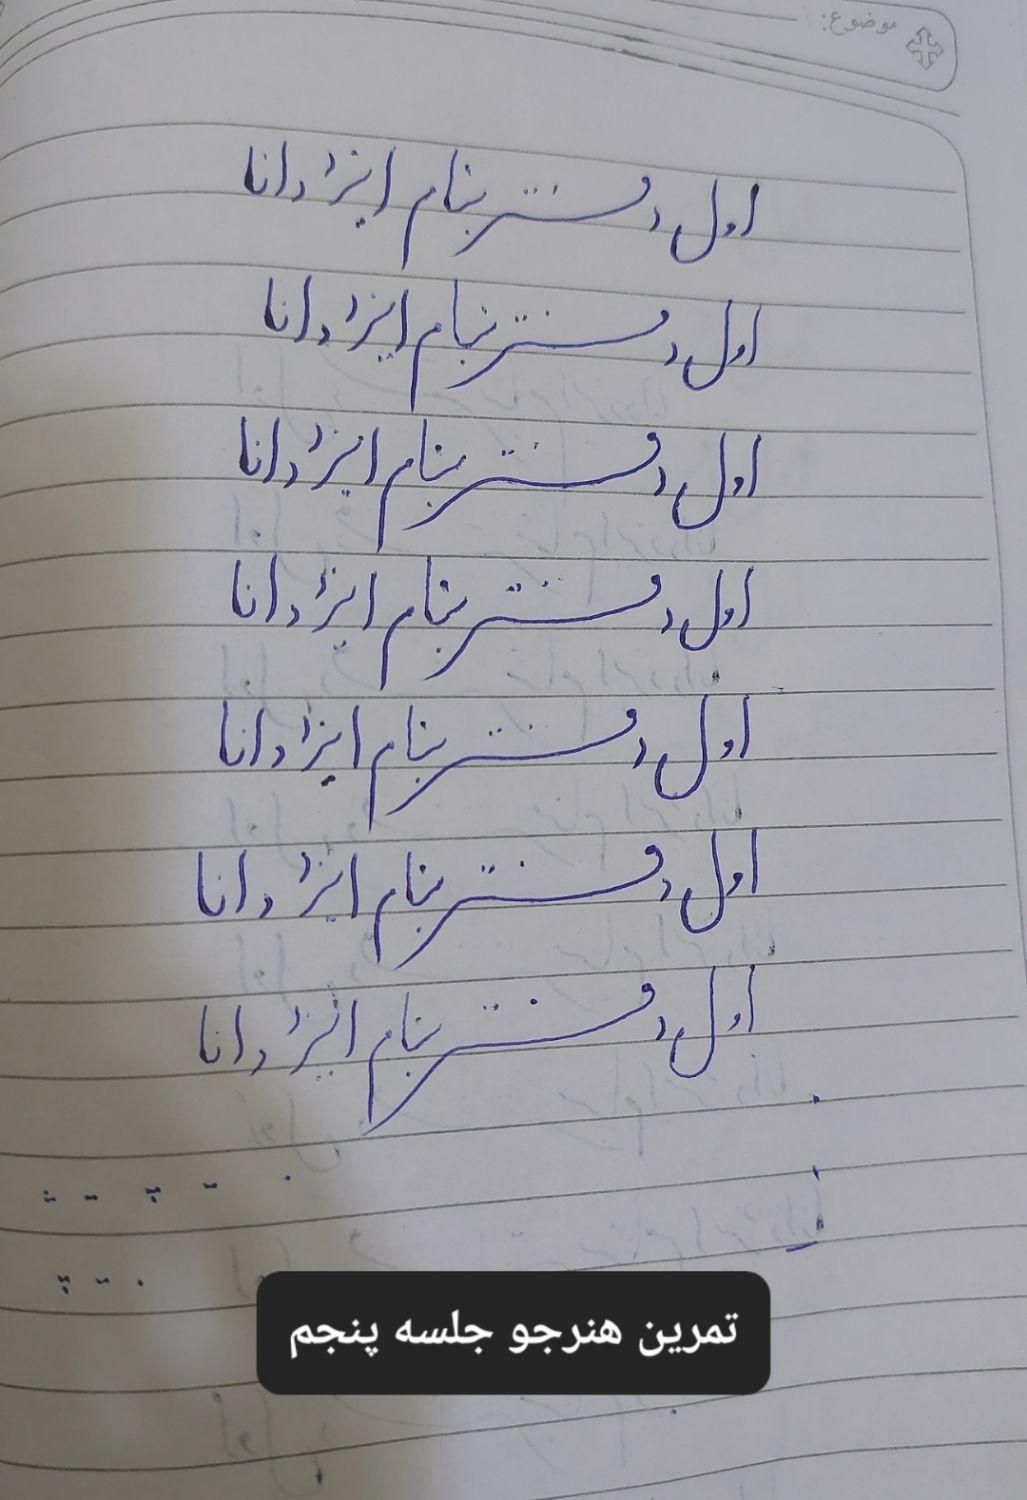 موضوع:
اول دفتر بنام ایزد دانا
اول دفتر بنام ایزد دانا
اول دفتر بنام ایزد دانا
اول دفتر بنام ایزد دانا
اول دفتر بنام ایزد دانا
اول دفتر بنام ایزد دانا
اول دفتر بنام ایزد دانا
تمرین هنرجو جلسه پنجم